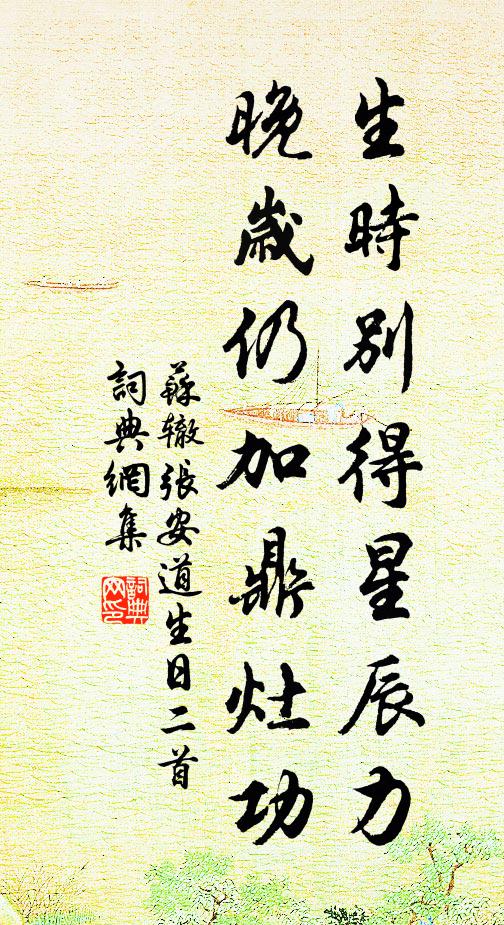 生時別得星辰力
晚歲仍加鼎灶功
蘇轍張安道生日二首
詞典網集
詞典
网印